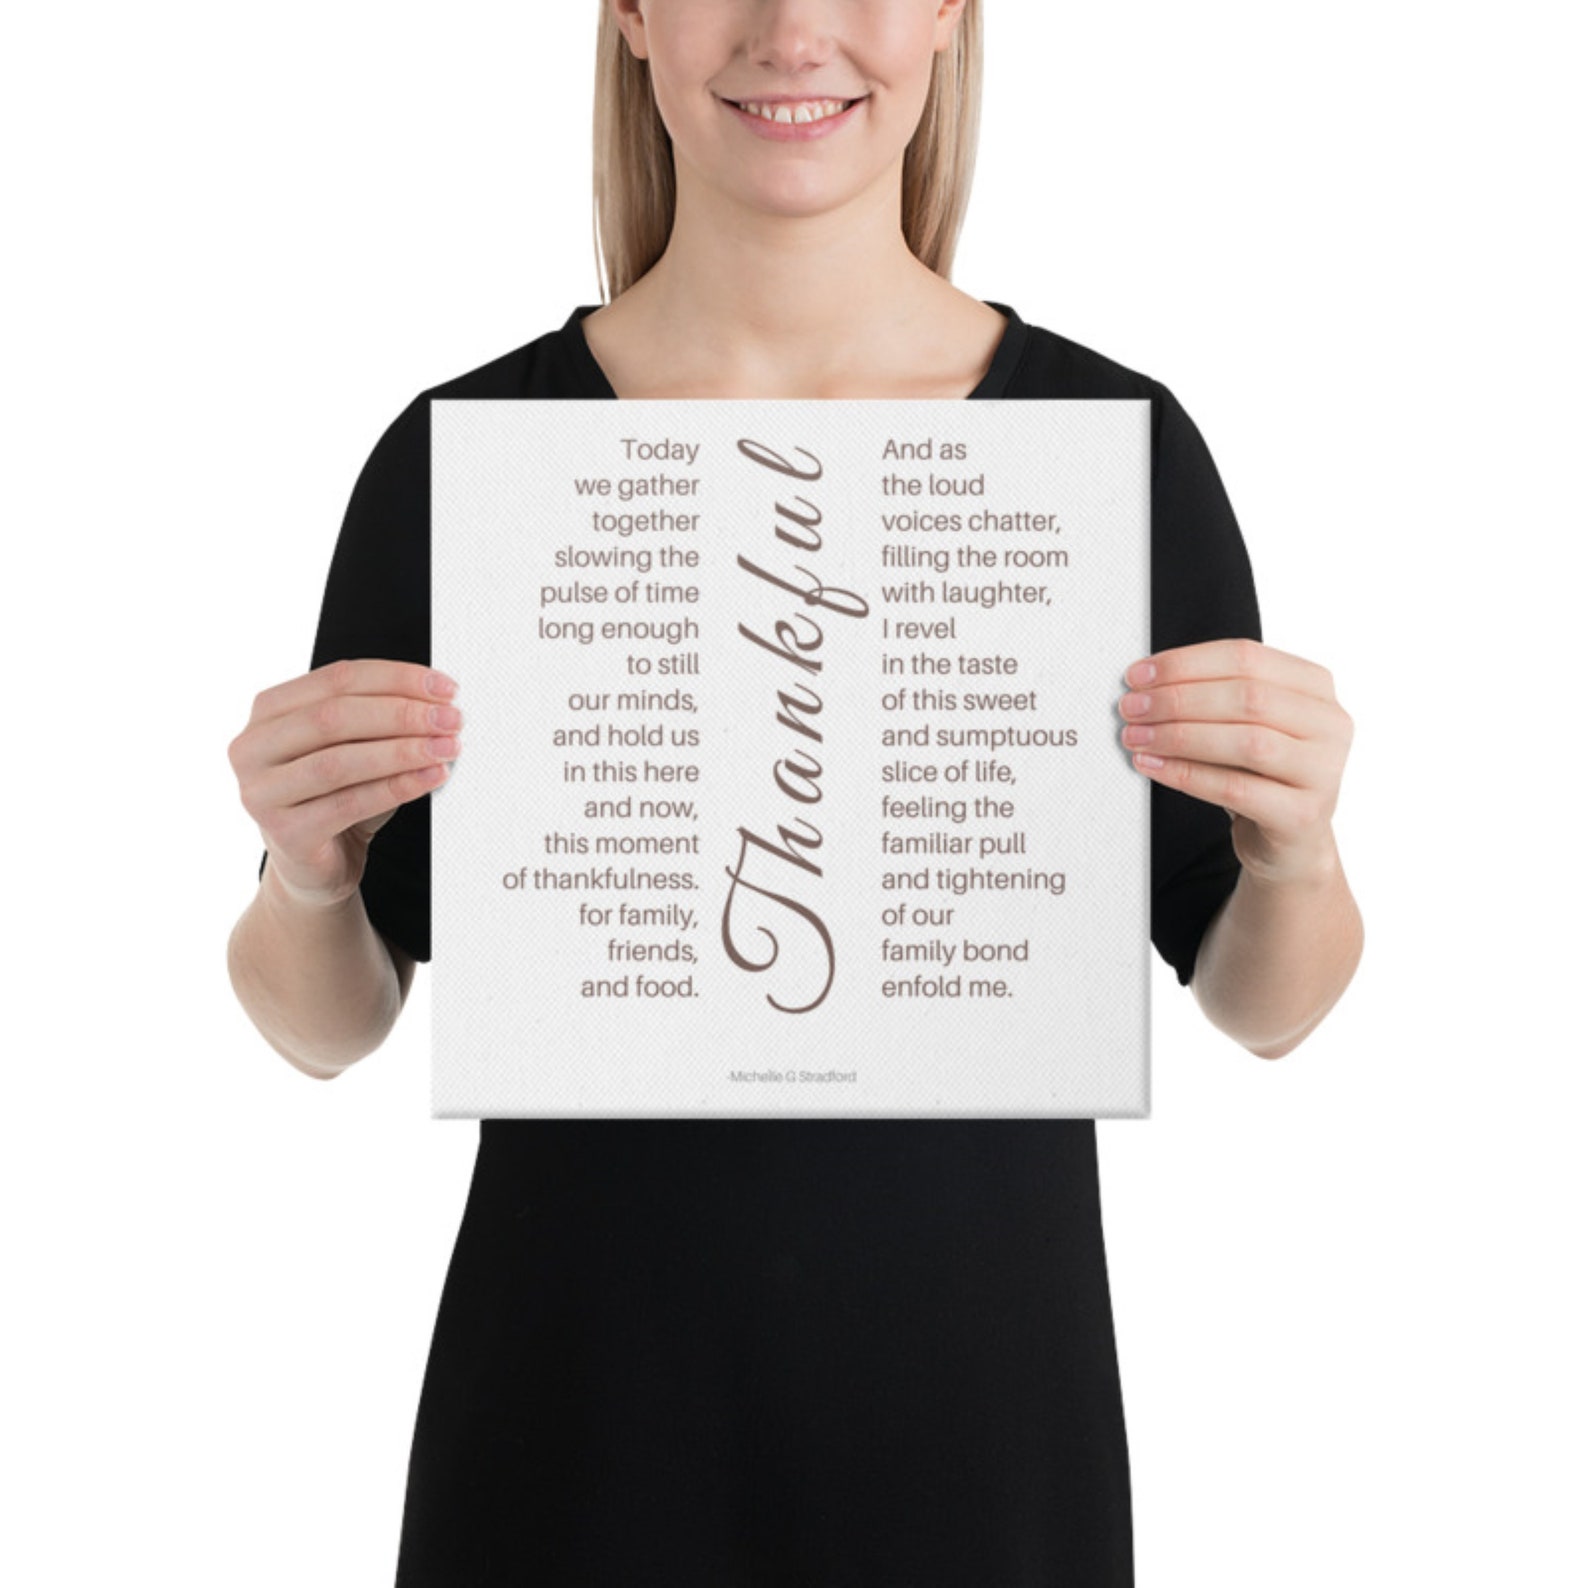 Today
we gather
together
slowing the
pulse of time
long enough
to still
our minds,
and hold us
in this here
and now,
this moment
of thankfulness.
for family,
friends,
and food.
Thankful
And as
the loud
voices chatter,
filling the room
with laughter,
I revel
in the taste
of this sweet
and sumptuous
slice of life,
feeling the
familiar pull
and tightening
of our
family bond
enfold me.
-Michelle G Stradford